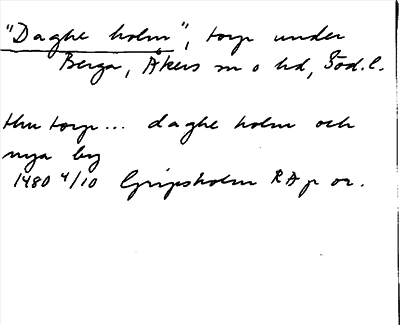 "Daghe holm", torp under
Berga, Åkers sn o hd, Söd.l.
thu torp... daghe holm och
nya by
1480 4/10 Gripsholm RAp or.